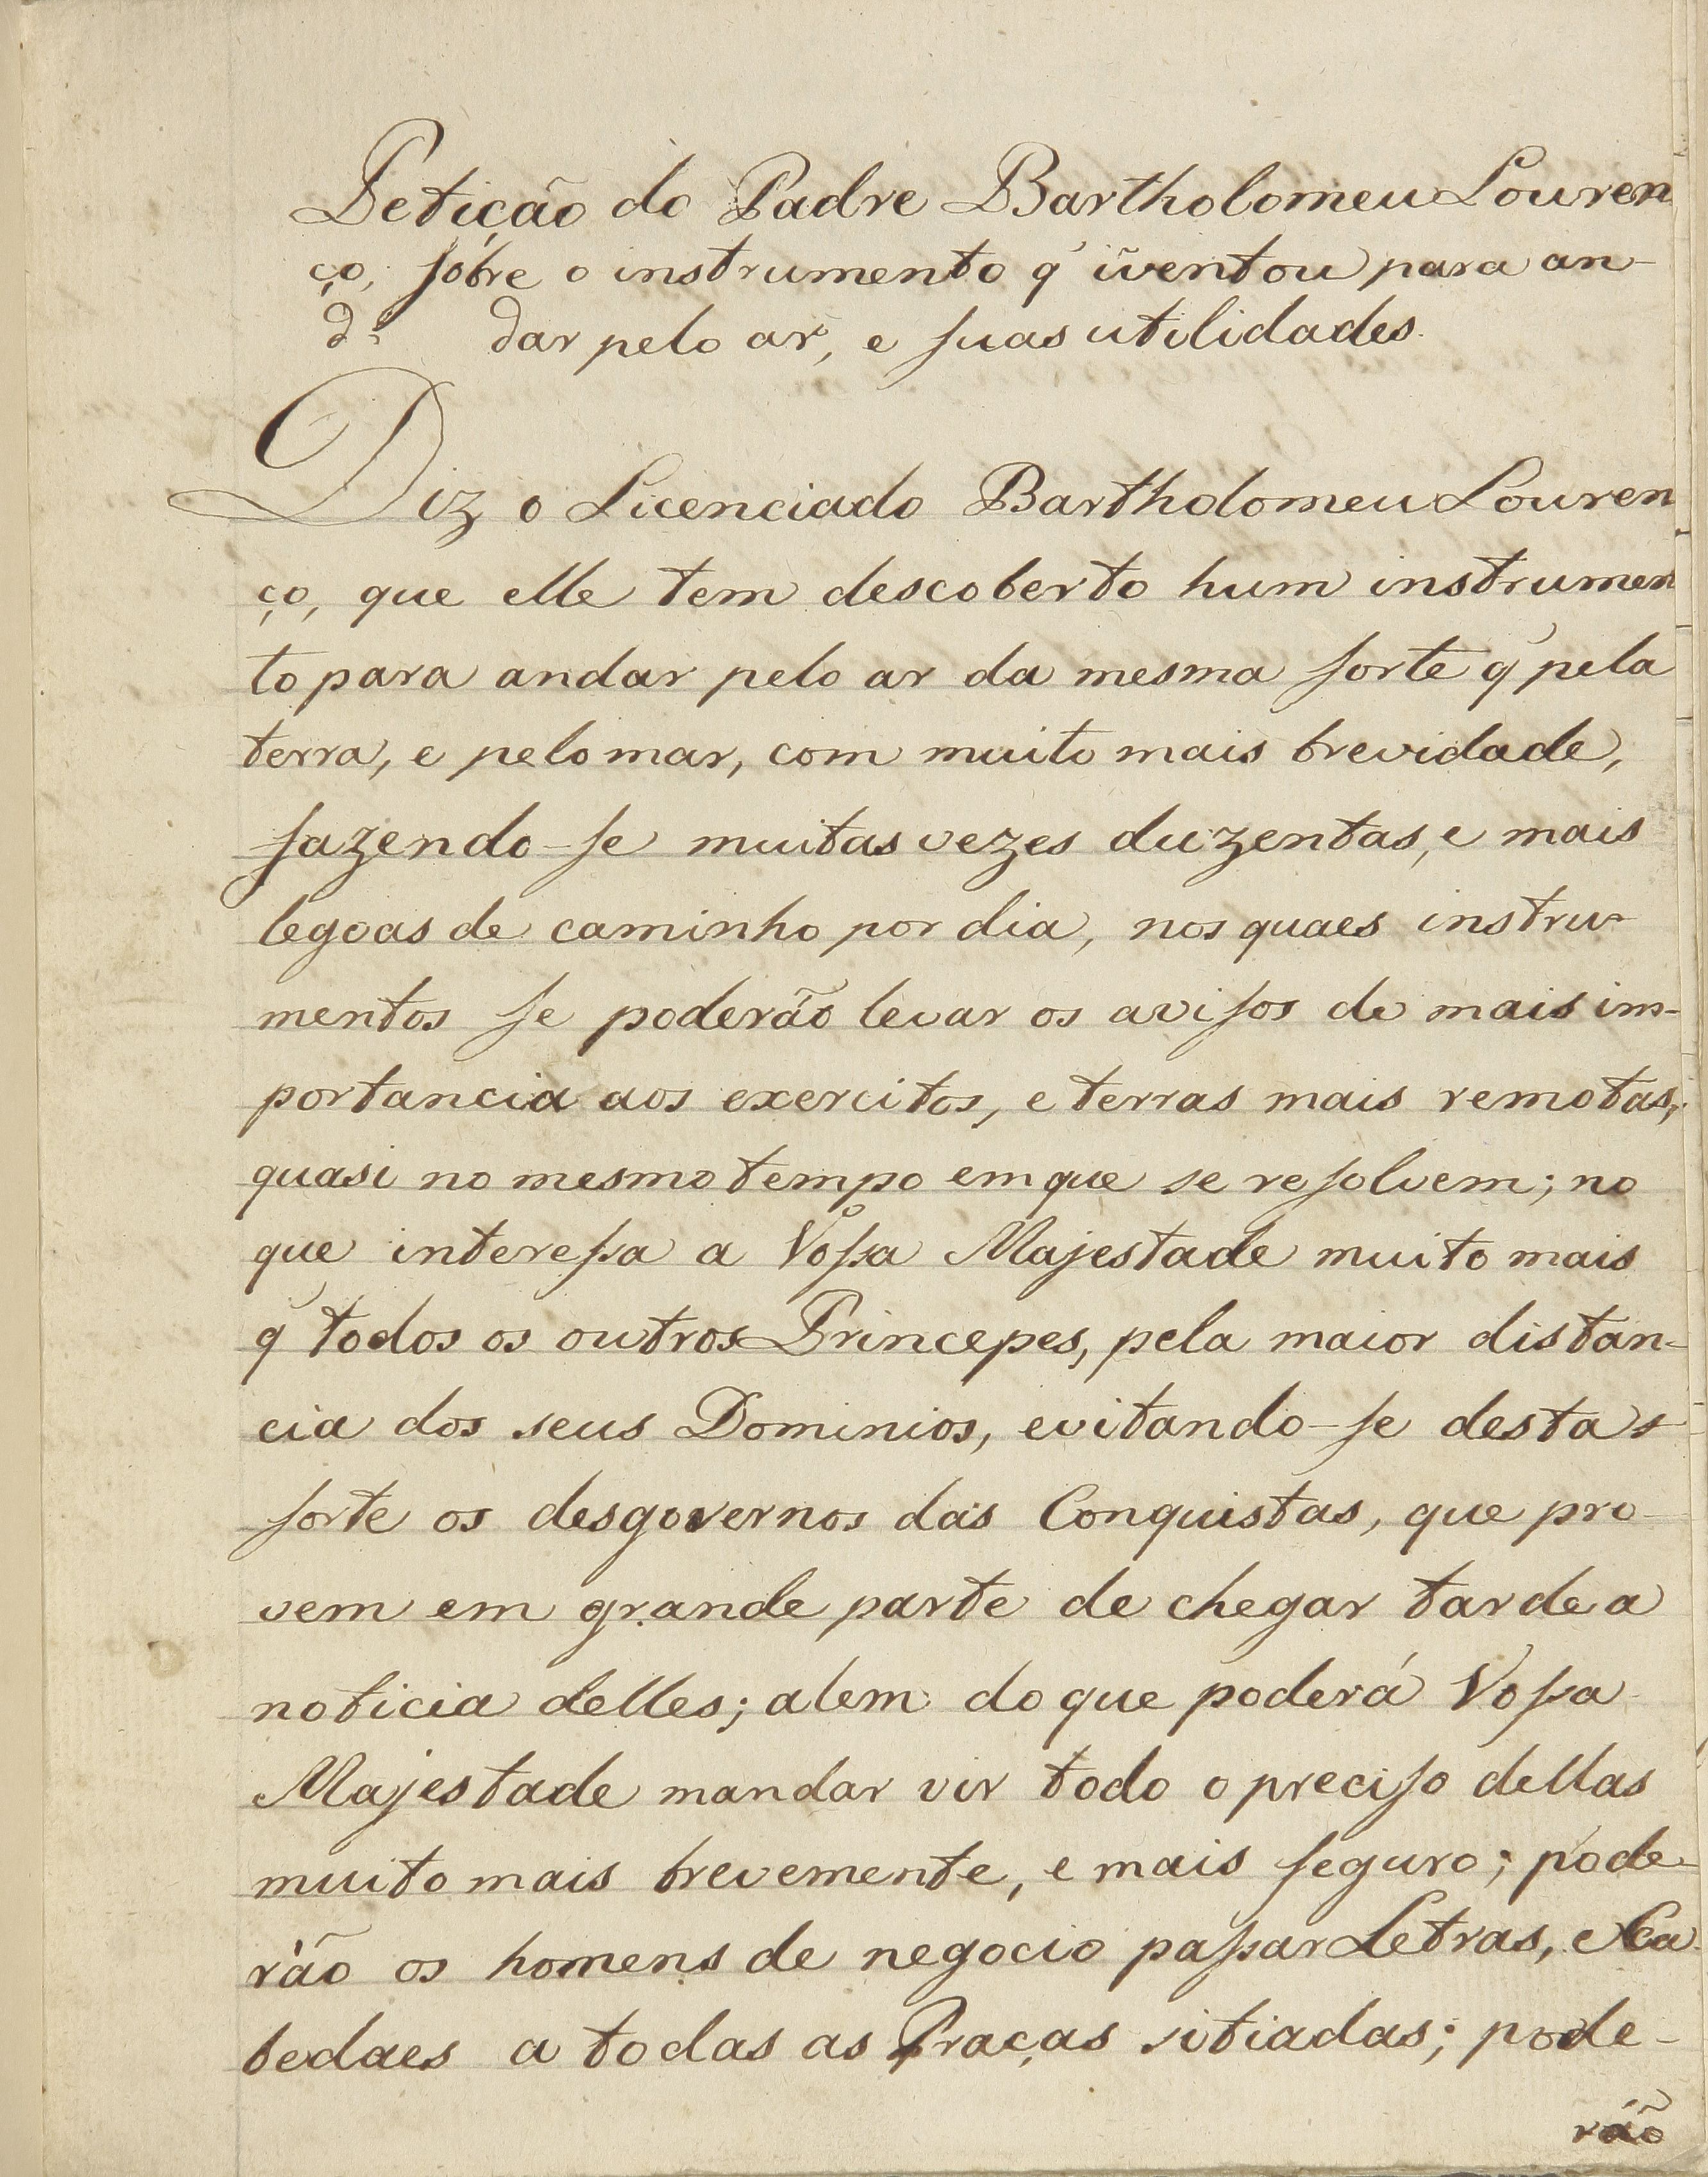 Petição do Padre Bartholomeu Louren
ço, sóbre o instrumento q̃ iñventou para an-
dar pelo ar, e suas utilidades.
Diz o Licenciado Bartholomeu Louren
ço, que elle tem descoberto hum instrumen
to para andar pelo ar da mesma sorte q̃ pela
terra, e pelo mar, com muito mais brevidade,
fazendo-se muitas vezes duzentas, e mais
legoas de caminho por dia, nos quaes instru-
mentos se poderão levar os avisos de mais im-
portancia aos exercitos, e terras mais remotas,
quasi no mesmo tempo em que se resolvem; no
que interessa a Vossa Majestade muito mais
q̃ todos os outros Princepes, pela maior distan-
cia dos seus Dominios, evitando-se desta
sorte os desgovernos das Conquistas, que pro-
vem em grande parte de chegar tarde a
noticia delles; alem do que poderá Vossa
Majestade mandar vir todo o preciso dellas
muito mais brevemente, e mais seguro; pode-
rão os homens de negocio passar Letras, e Ca-
bedaes a todas as Praças sitiadas; pode-
rão